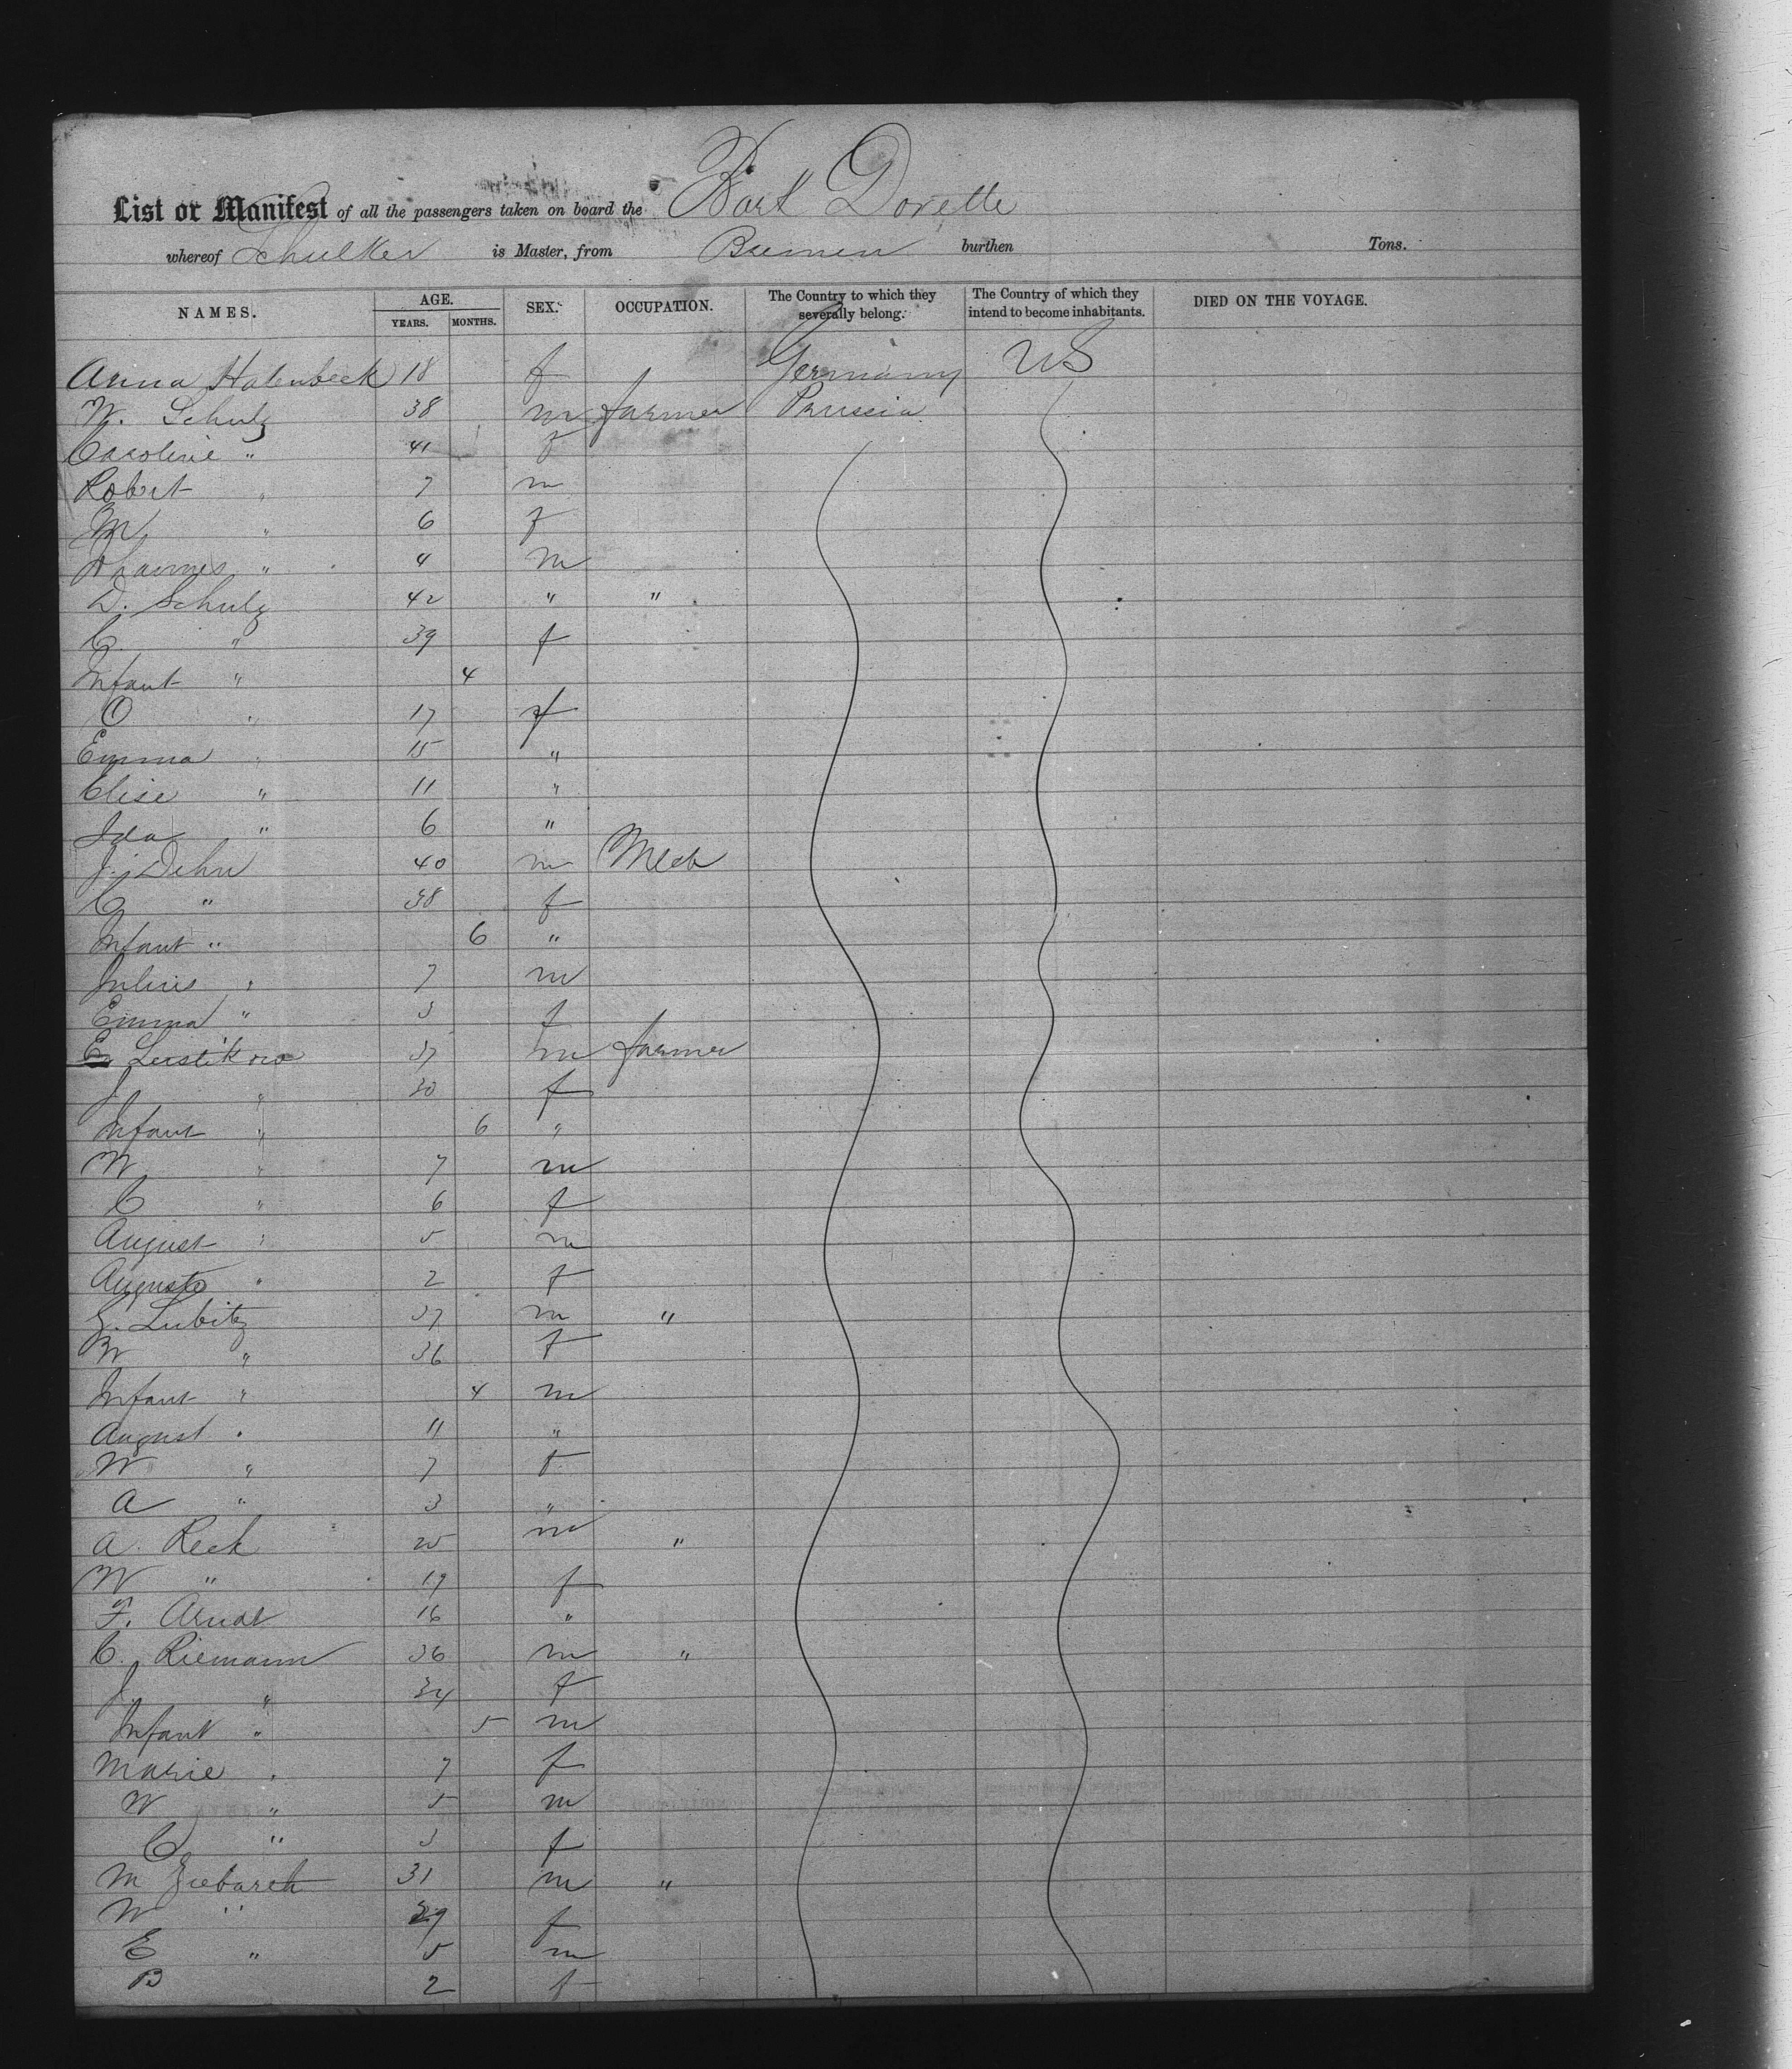 List or Manifest of all the passengers taken on board the Bark Dorette
whereof Schulker is Master, from Bremen burthen Tons.
NAMES. AGE. YEARS. MONTHS. SEX. OCCUPATION. The Country to which they severally belong. The Country of which they intend to become inhabitants. DIED ON THE VOYAGE.
Anna Halenbeck 18 f Germany US
W. Schulz 38 m farmer Prussia
Caroline " 41 f
Robert " 7 m
M " 6 f
Johannes " 4 m
D. Schulz 42 " "
C " 39 f
Infant " 4
O " 17 f
Emma " 15 "
Elise " 11 "
Ida " 6 "
J. Dehn 40 m Mech
C " 38 f
Infant " 6 "
Julius " 7 m
Emma " 3 f
E Leistikow 37 m farmer
J " 30 f
Infant " 6 "
W " 7 m
C " 6 f
August " 5 m
Auguste " 2 f
G. Lubitz 37 m "
W " 36 f
Infant " 4 m
August " 11 "
W " 7 f
A " 3 "
A. Reck 25 m "
W " 19 f
F. Arndt 16 "
C. Riemann 36 m "
J " 34 f
Infant " 5 m
Marie " 7 f
W " 5 m
C " 3 f
M Ziebarth 31 m "
W " 29 f
E " 5 m
B 2 f